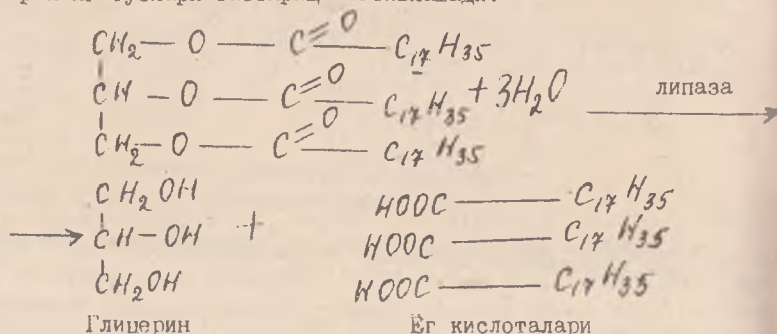 CH2 — O — C=O — C17H35
CH — O — C=O — C17H35 + 3H2O липаза
CH2 — O — C=O — C17H35
CH2OH HOOC — C17H35
CH — OH + HOOC — C17H35
CH2OH HOOC — C17H35
Глицерин Ёг кислоталари